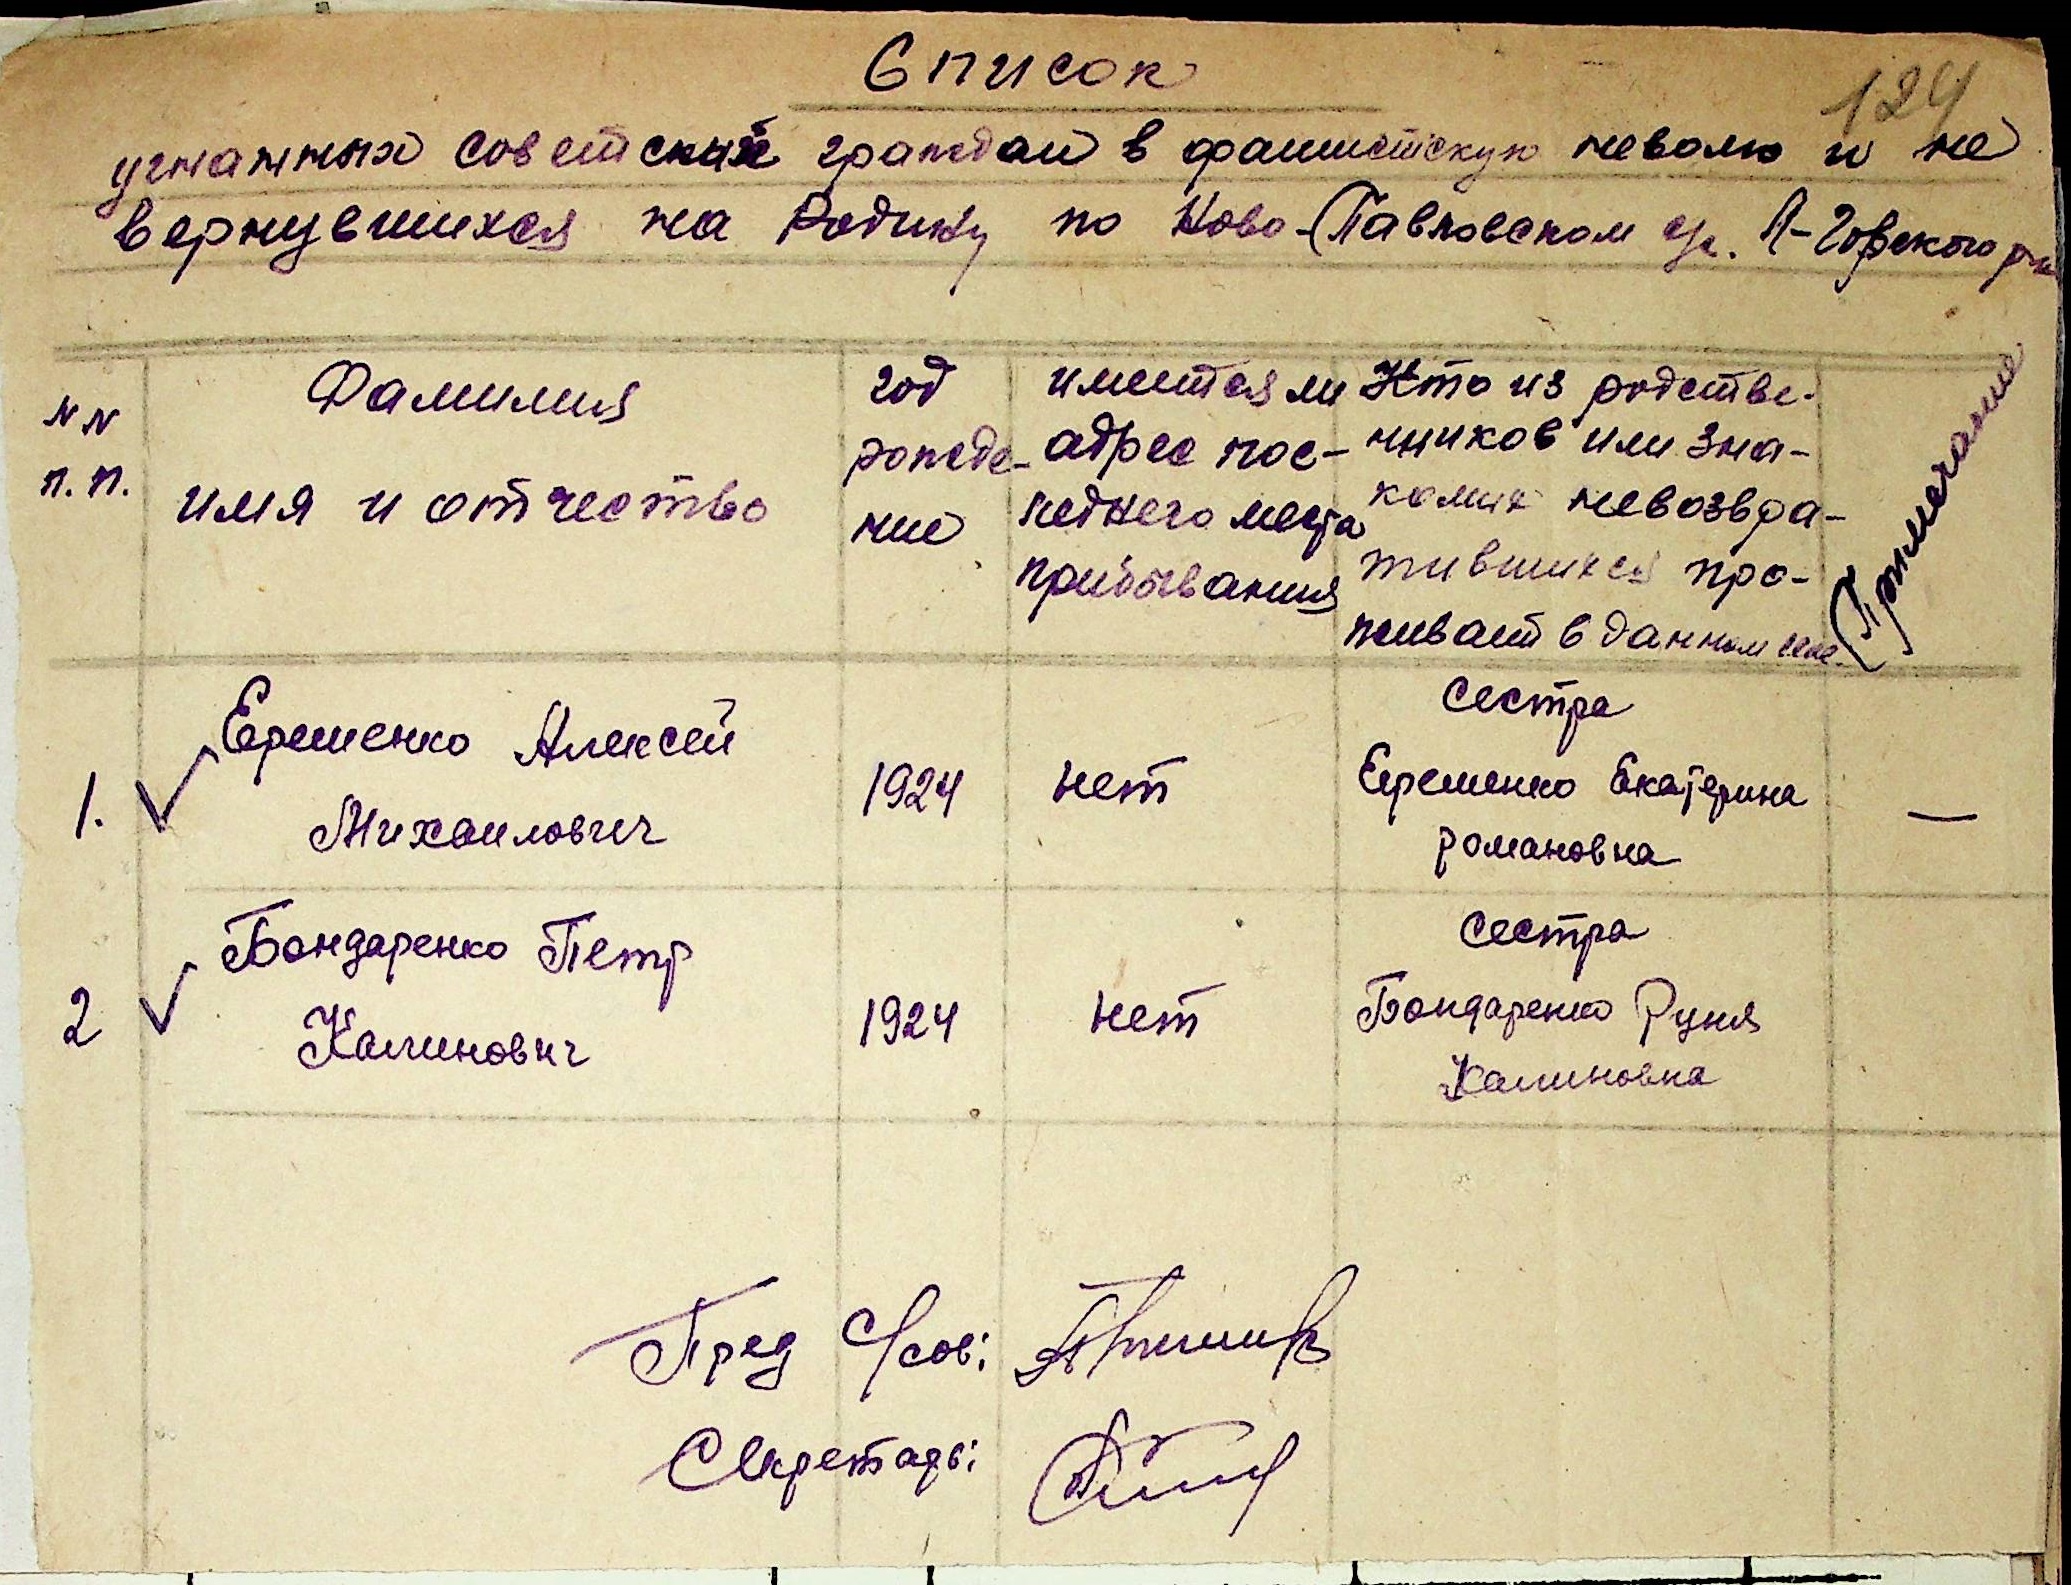 Список
124
угнанных советских граждан в фашистскую неволю и не
вернувшихся на Родину по Ново-Павловском с/с. А-Горского р-на
NN
п.п.
Фамилия
имя и отчество
год
рожде-
ние
имеется ли
адрес пос-
леднего места
прибывания
Кто из родстве-
нников или зна-
комых невозвра-
тившихся про-
живает в данном селе
Примечание
1. Еременко Алексей
Михаилович
1924
нет
сестра
Еременко Екатерина
романовна
—
2 Бондаренко Петр
Калинович
1924
нет
сестра
Бондаренко Руня
Калиновна
Пред С/сов:
Секретарь: